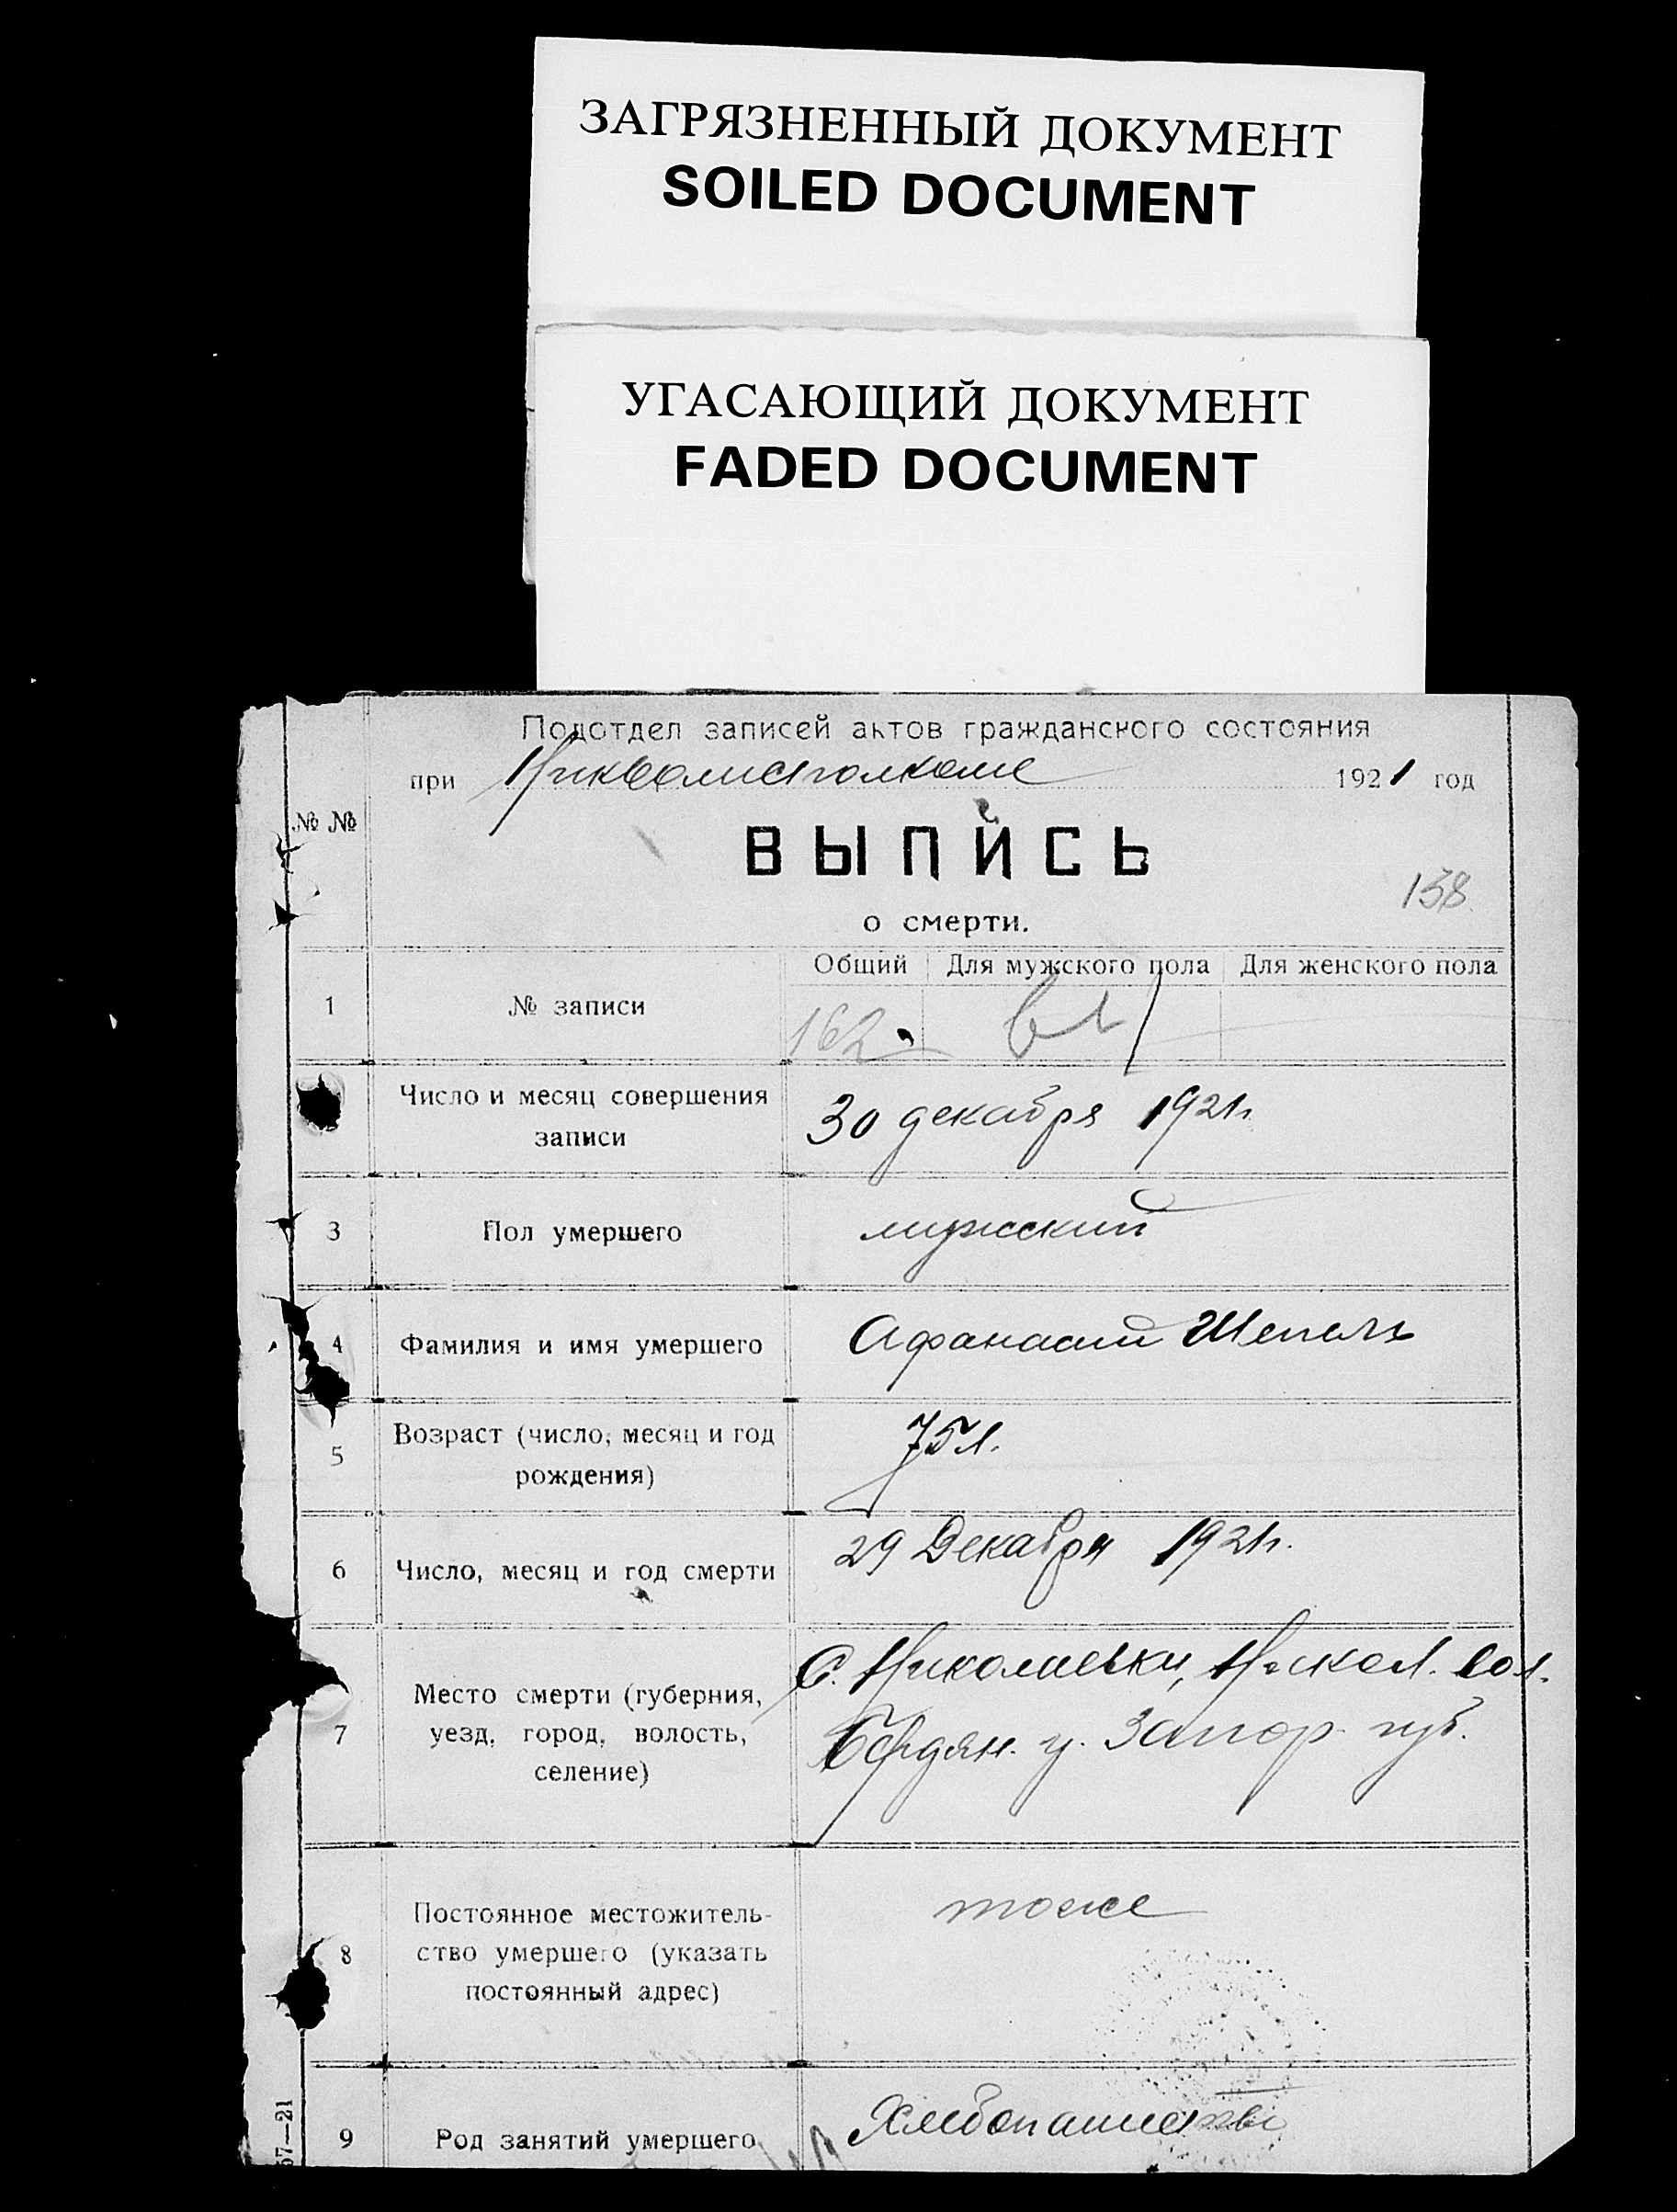 ЗАГРЯЗНЕННЫЙ ДОКУМЕНТ
SOILED DOCUMENT
УГАСАЮЩИЙ ДОКУМЕНТ
FADED DOCUMENT
Подотдел записей актов гражданского состояния
при Никволисполкоме 1921 год
№ №
ВЫПИСЬ
138
о смерти.
Общий Для мужского пола Для женского пола
1 № записи 162
Число и месяц совершения
записи
30 декабря 1921г.
3 Пол умершего мужский
4 Фамилия и имя умершего Афанасий Шепель
5 Возраст (число, месяц и год
рождения)
75 л.
6 Число, месяц и год смерти 29 Декабря 1921г.
7 Место смерти (губерния,
уезд, город, волость,
селение)
С. Николаевки, Никол. вол.
Бердян. у. Запор. губ.
8 Постоянное местожитель-
ство умершего (указать
постоянный адрес)
тоже
9 Род занятий умершего
57—21